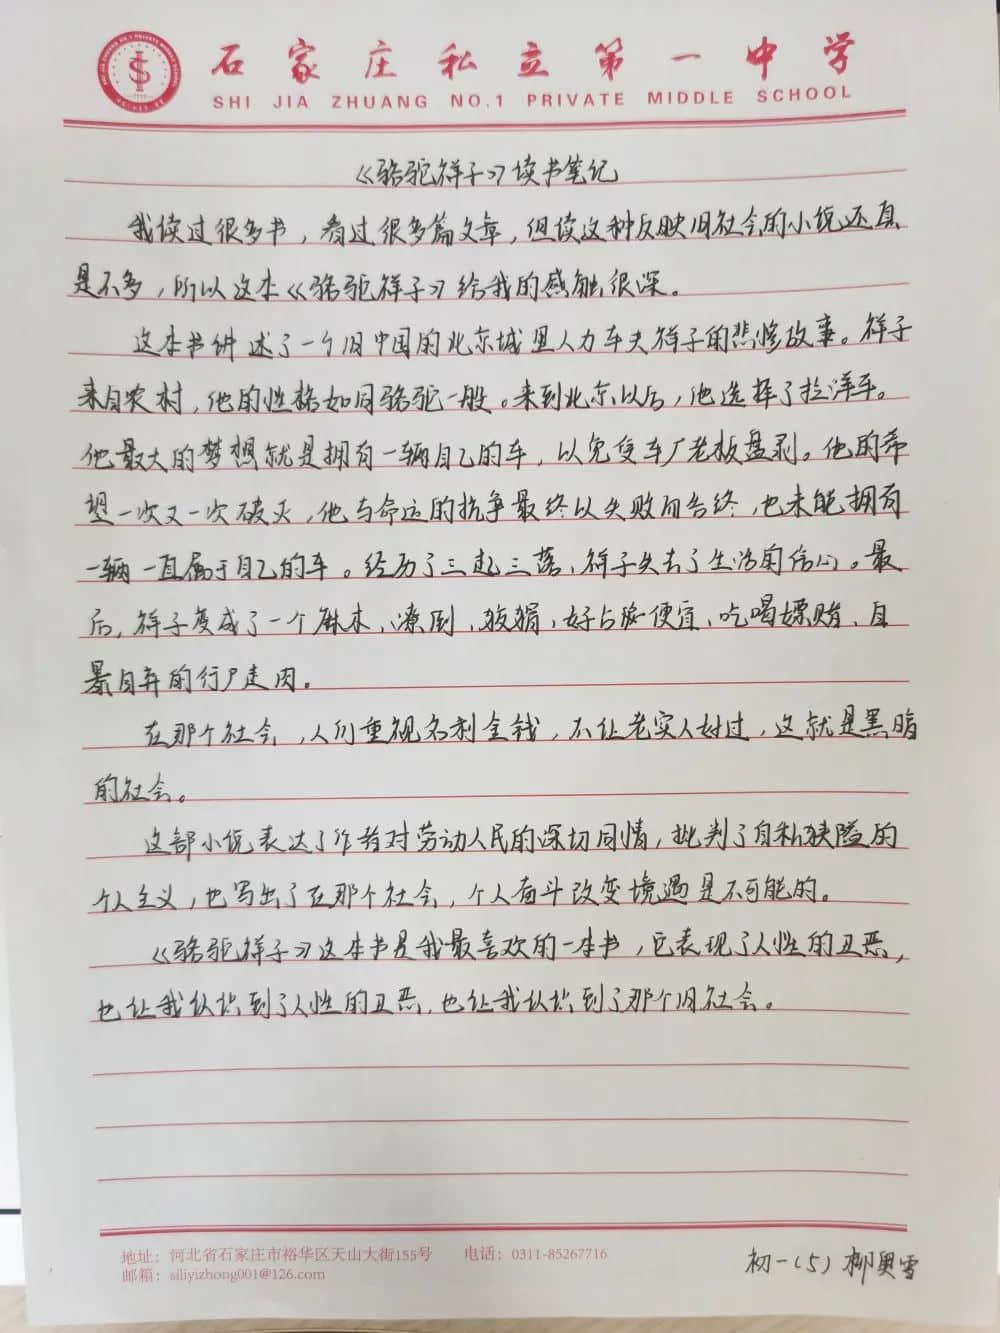 石家庄私立第一中学
SHI JIA ZHUANG NO.1 PRIVATE MIDDLE SCHOOL
《骆驼祥子》读书笔记
我读过很多书，看过很多篇文章，但读这种反映旧社会的小说还真
是不多，所以这本《骆驼祥子》给我的感触很深。
这本书讲述了一个旧中国的北京城里人力车夫祥子的悲惨故事。祥子
来自农村，他的性格如同骆驼一般。来到北京以后，他选择了拉洋车。
他最大的梦想就是拥有一辆自己的车，以免受车厂老板盘剥。他的希
望一次又一次破灭，他与命运的抗争最终以失败而告终，也未能拥有
一辆一直属于自己的车。经历了三起三落，祥子失去了生活的信心。最
后，祥子变成了一个麻木、潦倒、狡猾，好占便宜、吃喝嫖赌、自
暴自弃的行尸走肉。
在那个社会，人们重视名利金钱，不让老实人好过，这就是黑暗
的社会。
这部小说表达了作者对劳动人民的深切同情，批判了自私狭隘的
个人主义，也写出了在那个社会，个人奋斗改变境遇是不可能的。
《骆驼祥子》这本书是我最喜欢的一本书，它表现了人性的丑恶，
也让我认识到了人性的丑恶，也让我认识到了那个旧社会。
地址：河北省石家庄市裕华区天山大街155号 电话：0311-85267716
邮箱：siliyizhong001@126.com
初一(5) 柳奥雪